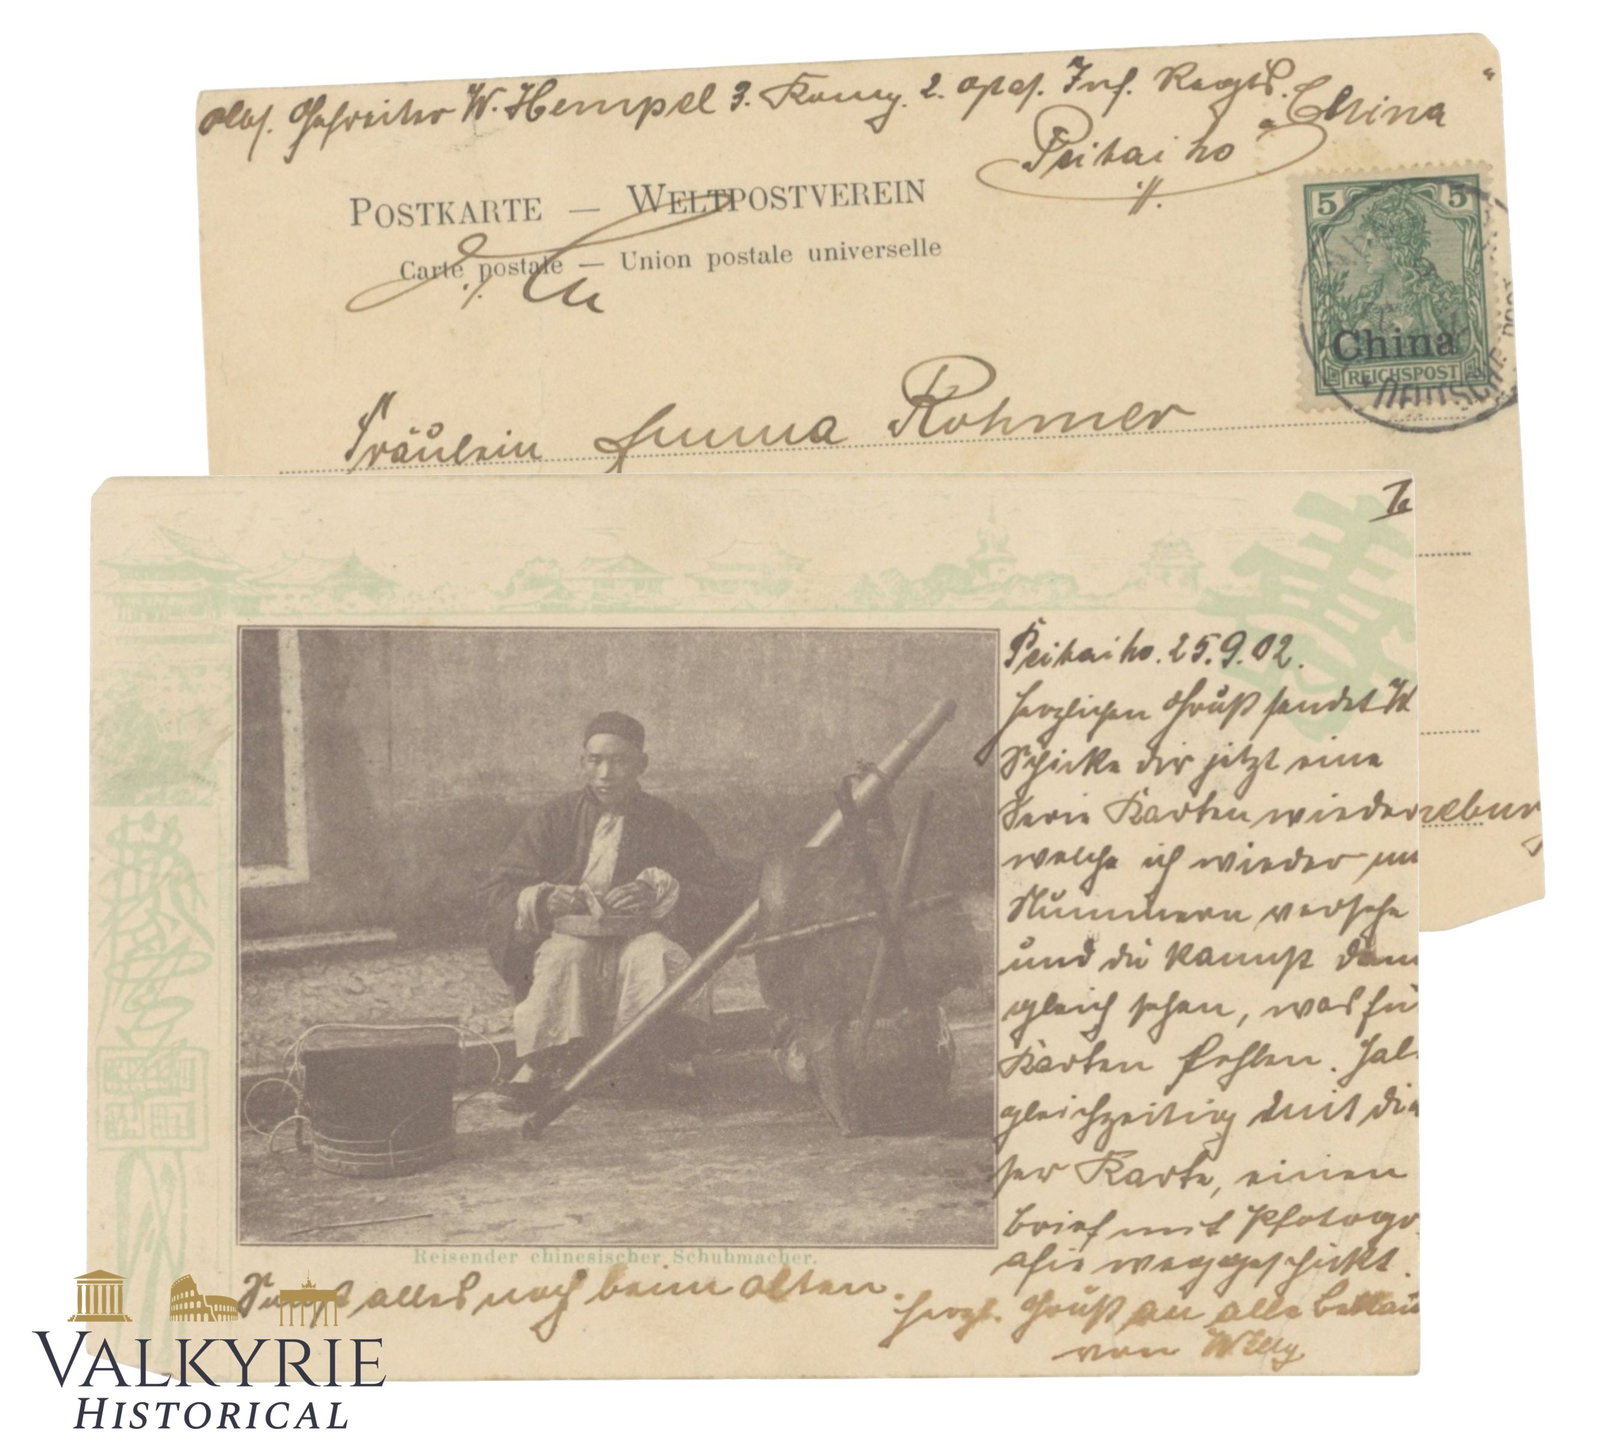 Abs. Gefreiter W. Hempel 3. Komp. 2. Inf. Regts. China
Peitaiho
POSTKARTE — WELTPOSTVEREIN
Carte postale — Union postale universelle
An
5 5
China
REICHSPOST
DEUTSCHE POST
Fräulein Emma Rohmer
Peitaiho. 25.9.02.
Herzlichen Gruß sendet W
Schicke dir jetzt eine
Serie Karten wieder
welche ich wieder m
Nummern versehe
und du kannst dann
gleich sehen, was fü
Karten fehlen. Hab
gleichzeitig mit die
ser Karte, einen
Brief mit Photogr
afie weggeschickt.
Reisender chinesischer Schuhmacher.
Sonst alles noch beim alten.
Herzl. Gruß an alle Bekan
von Willy
VALKYRIE
HISTORICAL